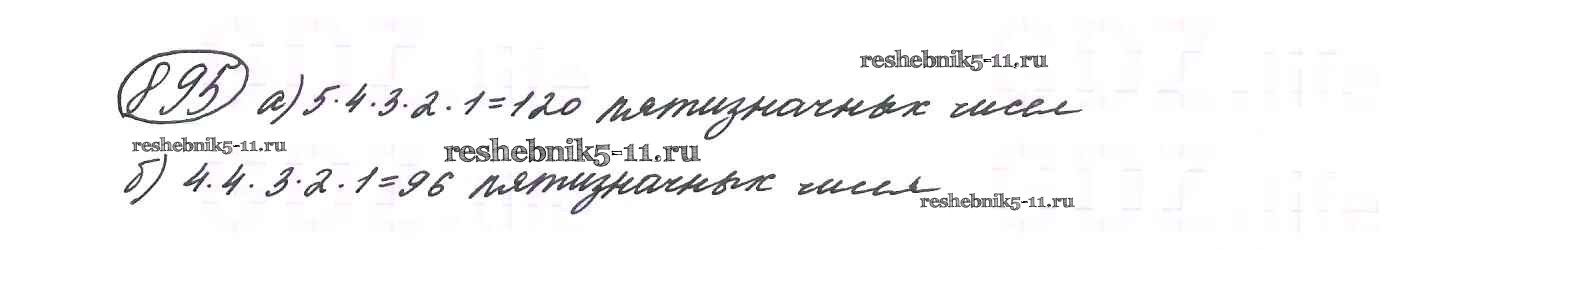 reshebnik5-11.ru
895 а) 5·4·3·2·1=120 пятизначных чисел
reshebnik5-11.ru
reshebnik5-11.ru
б) 4·4·3·2·1=96 пятизначных чисел
reshebnik5-11.ru